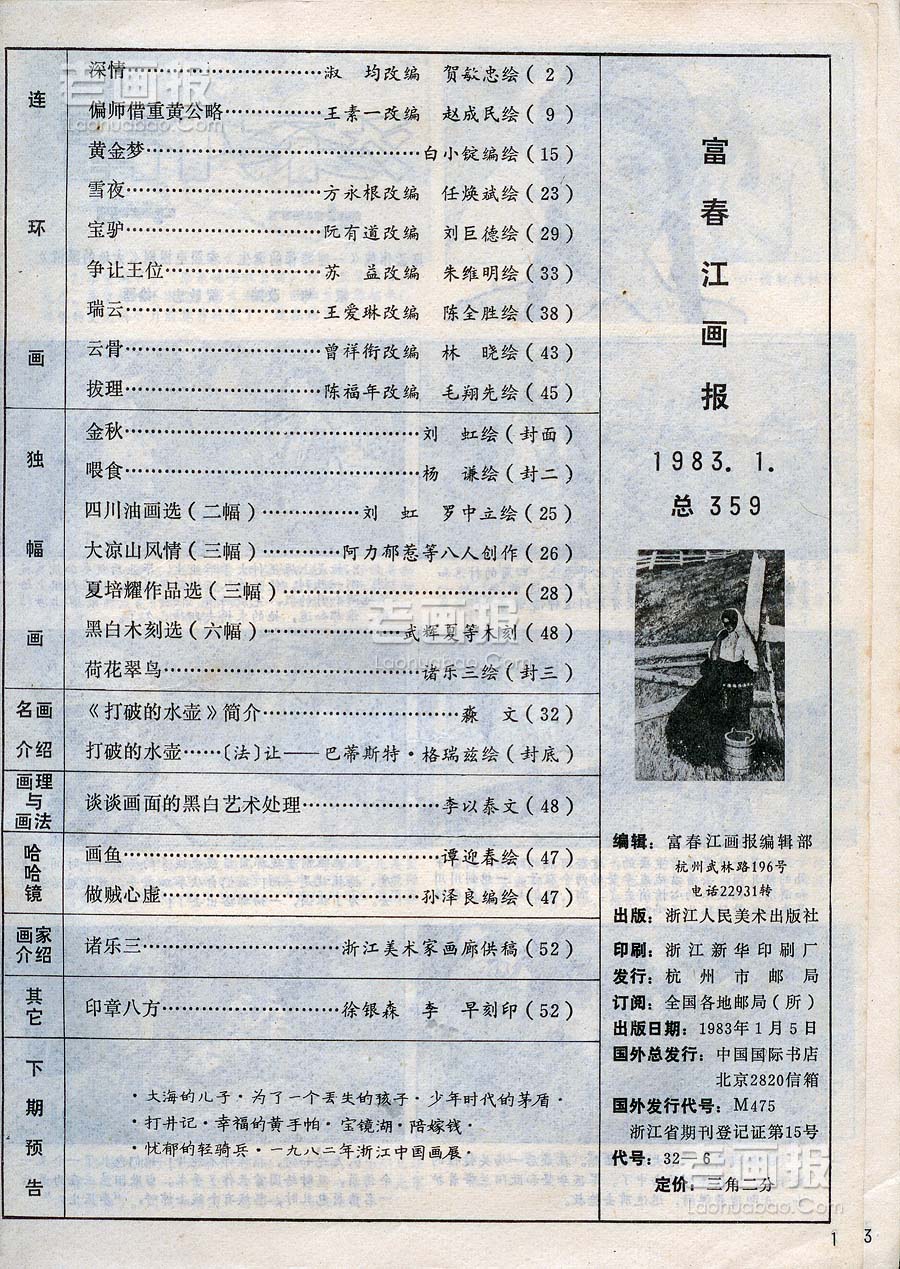 连环画
深情……………………淑　均改编　贺敏忠绘(2)
偏师借重黄公略…………王素一改编　赵成民绘(9)
黄金梦…………………………白小锭编绘(15)
雪夜……………………方永根改编　任焕斌绘(23)
宝驴……………………阮有道改编　刘巨德绘(29)
争让王位………………苏　益改编　朱维明绘(33)
瑞云……………………王爱琳改编　陈全胜绘(38)
云骨……………………曾祥衔改编　林　晓绘(43)
拔理……………………陈福年改编　毛翔先绘(45)
独幅画
金秋……………………………刘　虹绘(封面)
喂食……………………………杨　谦绘(封二)
四川油画选(二幅)……………刘　虹　罗中立绘(25)
大凉山风情(三幅)…………阿力郁惹等八人创作(26)
夏培耀作品选(三幅)……………………(28)
黑白木刻选(六幅)……………武辉夏等木刻(48)
荷花翠鸟………………………诸乐三绘(封三)
名画介绍
《打破的水壶》简介…………………淼　文(32)
打破的水壶……〔法〕让——巴蒂斯特·格瑞兹绘(封底)
画理与画法
谈谈画面的黑白艺术处理……………李以泰文(48)
哈哈镜
画鱼……………………………谭迎春绘(47)
做贼心虚………………………孙泽良编绘(47)
画家介绍
诸乐三…………………浙江美术家画廊供稿(52)
其它
印章八方………………徐银森　李　早刻印(52)
下期预告
·大海的儿子·为了一个丢生的孩子·少年时代的茅盾·
·打井记·幸福的黄手帕·宝镜湖·陪嫁钱·
·忧郁的轻骑兵·一九八二年浙江中国画展·
富春江画报
1983.1.
总 359
编辑：富春江画报编辑部
杭州武林路196号
电话22931转
出版：浙江人民美术出版社
印刷：浙江新华印刷厂
发行：杭州市邮局
订阅：全国各地邮局(所)
出版日期：1983年1月5日
国外总发行：中国国际书店
北京2820信箱
国外发行代号：M475
浙江省期刊登记证第15号
代号：32—6
定价：三角二分
1
3
老画报
Laohuabao.Com
老画报
Laohuabao.Com
老画报
Laohuabao.Com